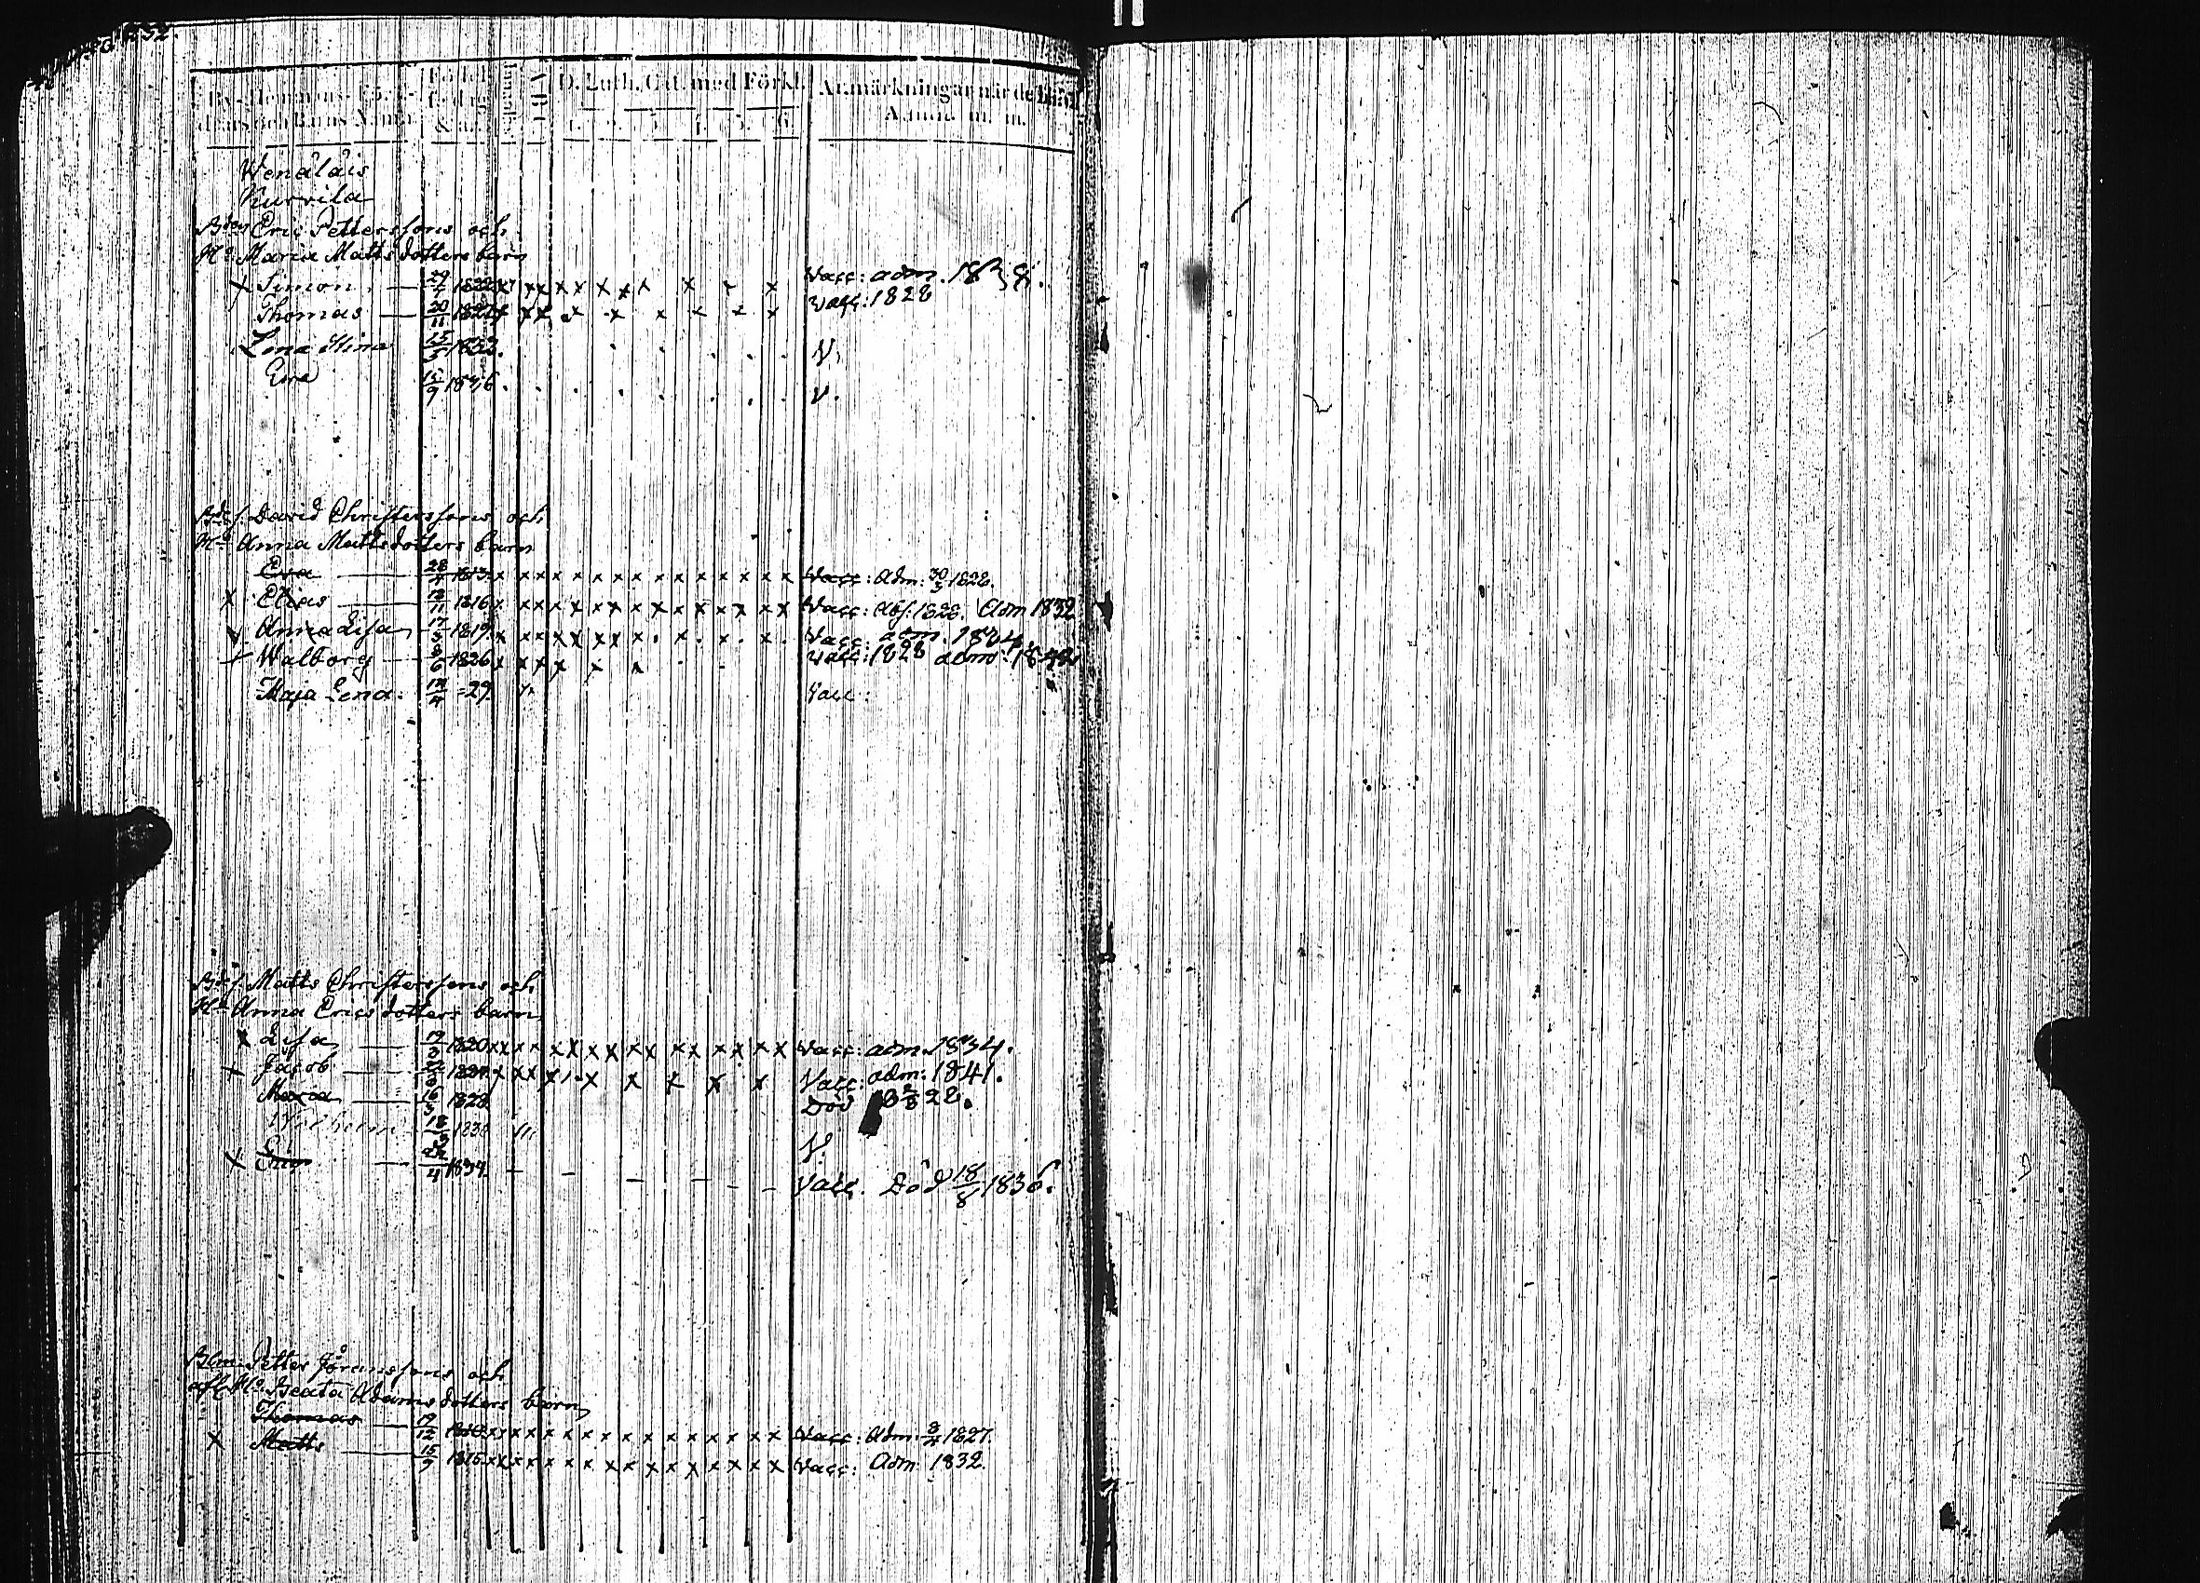 252.
By- Hemmans- Föräl-
drars och Barns Namn.
Födel.
sedag
& år.
Innanläs.
A B C
D. Luth. Cat. med Förkl.
1. 2. 3. 4. 5. 6.
Anmärkningar när de blifvit
Admitt. m. m.
Wenäläis
Kurvila
Bdn Eric Pettersfons och
Ho Maria Mattsdotters barn
x Simon — 1822 x x x x x x x x x x x Vacc: adm. 1838.
Thomas — 20/11 1824 x x x x x x x x x Vacc: 1828
Lena Stina 15/5 1833. V.
Eva 15/9 1836. V.
Bds. David Christersfons och
Ho Anna Mattsdotters barn
Eva — 28/4 1813 x x x x x x x x x x x x x x Vacc: Adm: 30/3 1828.
x Elias — 12/11 1816 x x x x x x x x x x x x x x Vacc: Abs. 1828. Adm 1832
x Anna Lisa — 17/3 1819 x x x x x x x x . x . x . x . Vacc. adm. 1834
x Walborg — 8/6 1826 x x x x x x Vacc: 1828 adm: 1842
Maja Lena. 14/4 =29. Vacc:
Bds. Matts Christersfons och
Ho Anna Ericsdotters barn
x Lisa — 1820 x x x x x x x x x x x x x x Vacc: adm. 1834.
x Jacob — x x x x x x x x x Vacc: adm: 1841.
Maria — 16/3 1828 Död 28.
Wilhelm 18/3 1830 V.
x — 22/4 1834. — — — — — — Vacc. Död 18/8 1836.
Blm. Petter Jöransfons och
afl. Ho Beata Adamsdotters barn
Thomas — 19/12 1810 x x x x x x x x x x x x x x Vacc: Adm. 8/4 1827.
x Matts — 15/9 1815 x x x x x x x x x x x x x x Vacc: Adm 1832.